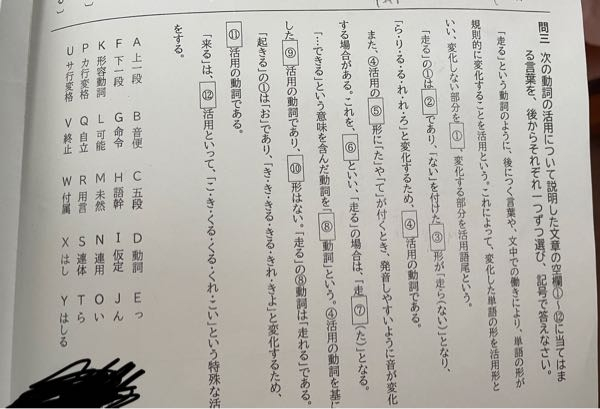 問三 次の動詞の活用について説明した文章の空欄①〜⑫に当てはま
る言葉を、後からそれぞれ一つずつ選び、記号で答えなさい。
「走る」という動詞のように、後につく言葉や、文中での働きにより、単語の形が
規則的に変化することを活用という。これによって、変化した単語の形を活用形と
いい、変化しない部分を①、変化する部分を活用語尾という。
「走る」の①は②であり、「ない」を付けた③形が「走ら(ない)」となり、
「ら・り・る・る・れ・れ・ろ」と変化するため、④活用の動詞である。
また、④活用の⑤形に「た」や「て」が付くとき、発音しやすいように音が変化
する場合がある。これを、⑥といい、「走る」の場合は、「走⑦(た)」となる。
「…できる」という意味を含んだ動詞を「⑧動詞」という。④活用の動詞を基に
した⑨活用の動詞であり、⑩形はない。「走る」の⑧動詞は「走れる」である。
「起きる」の①は「お」であり、「き・き・きる・きる・きれ・きよ」と変化するため、
⑪活用の動詞である。
「来る」は、⑫活用といって、「こ・き・くる・くる・くれ・こい」という特殊な活
をする。
A 上一段 B 音便 C 五段 D 動詞 E っ
F 下一段 G 命令 H 語幹 I 仮定 J ん
K 形容動詞 L 可能 M 未然 N 連用 O い
P カ行変格 Q 自立 R 用言 S 連体 T ら
U サ行変格 V 終止 W 付属 X はし Y はしる